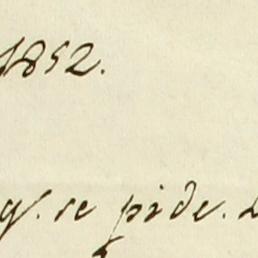 1852.
q.e se pide.